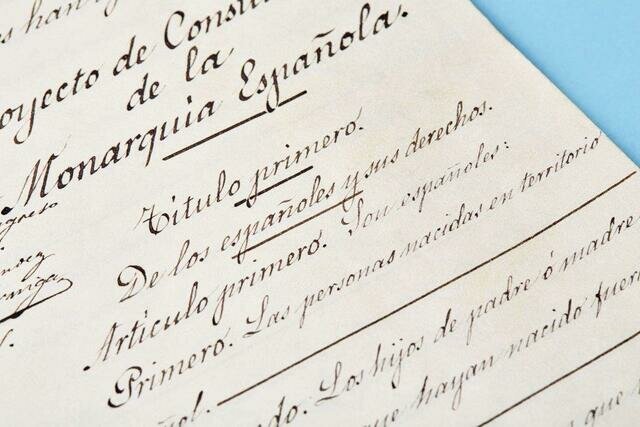 de Consti
de la
Monarquía Española.
Título primero.
De los españoles y sus derechos.
Artículo primero. Son españoles:
Primero. Las personas nacidas en territorio
Los hijos de padre ó madre
que hayan nacido fuera